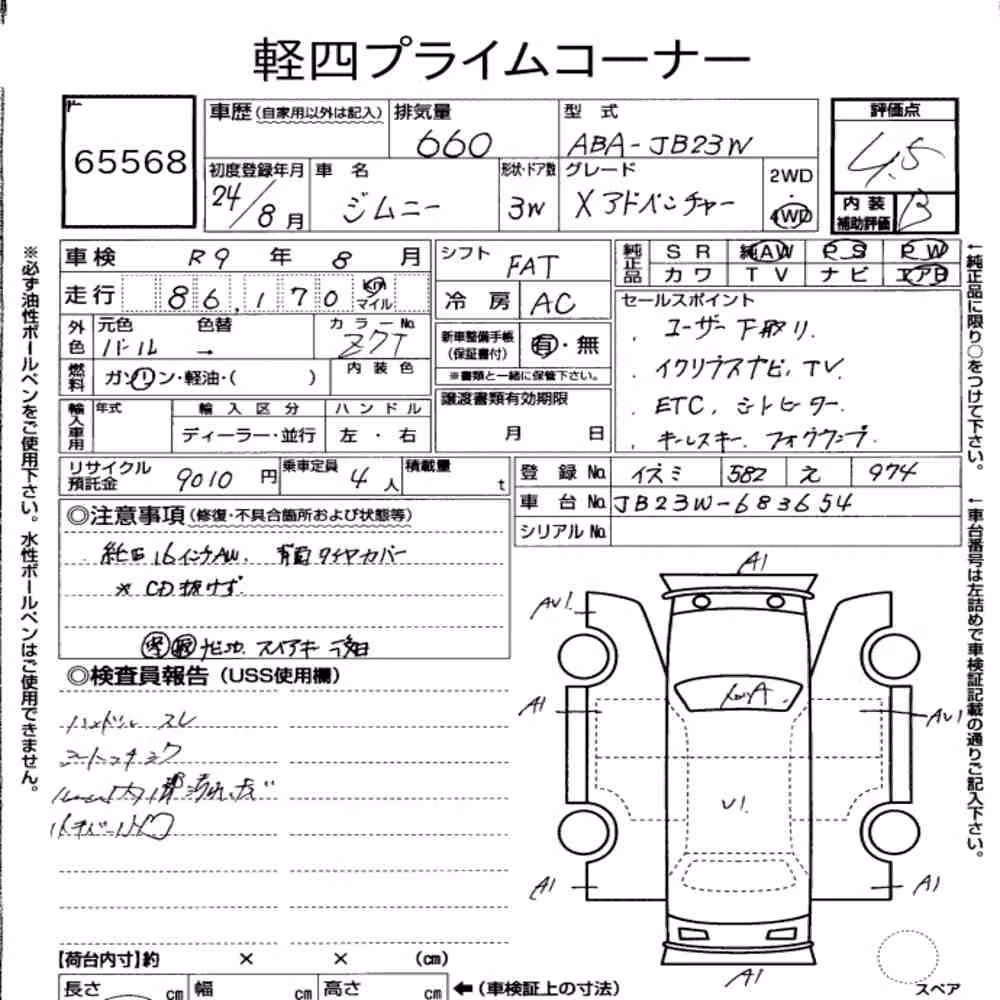 軽四プライムコーナー
65568
車歴(自家用以外は記入) 排気量 660 型式 ABA-JB23W 評価点 4.5
初度登録年月 24/8月 車名 ジムニー 形状・ドア数 3W グレード Xアドベンチャー 2WD 4WD 内装補助評価 B
車検 R9年8月 シフト FAT 純正品 SR 純AW PS PW
カワ TV ナビ エアB
走行 86,170 km マイル 冷房 AC
外色 元色 パール 色替 → カラーNo. Z7T
燃料 ガソリン・軽油・( ) 内装色
新車整備手帳(保証書付) 有・無
※書類と一緒に保管下さい。
輸入車用 年式 輸入区分 ハンドル
ディーラー・並行 左・右
譲渡書類有効期限
月 日
セールスポイント
・ユーザー下取り.
・イクリプスナビ, TV.
・ETC, シートヒーター.
・キーレスキー, フォグランプ.
リサイクル預託金 9010円 乗車定員 4人 積載量 t
登録No. イズミ 582 え 974
車台No. JB23W-683654
シリアルNo.
◎注意事項(修復・不具合箇所および状態等)
純正16インチAW, 背面タイヤカバー
* CD抜けず.
スペアキー 後日
◎検査員報告(USS使用欄)
ハンドル スレ
A1
AU1
A1
AU1
A
U1
A1
A1
A1
【荷台内寸】約 × × (cm)
長さ cm 幅 cm 高さ cm ←(車検証上の寸法)
スペア
※必ず油性ボールペンをご使用下さい。水性ボールペンはご使用できません。
←純正品に限り○をつけて下さい。
←車台番号は左詰めで車検証記載の通りご記入下さい。